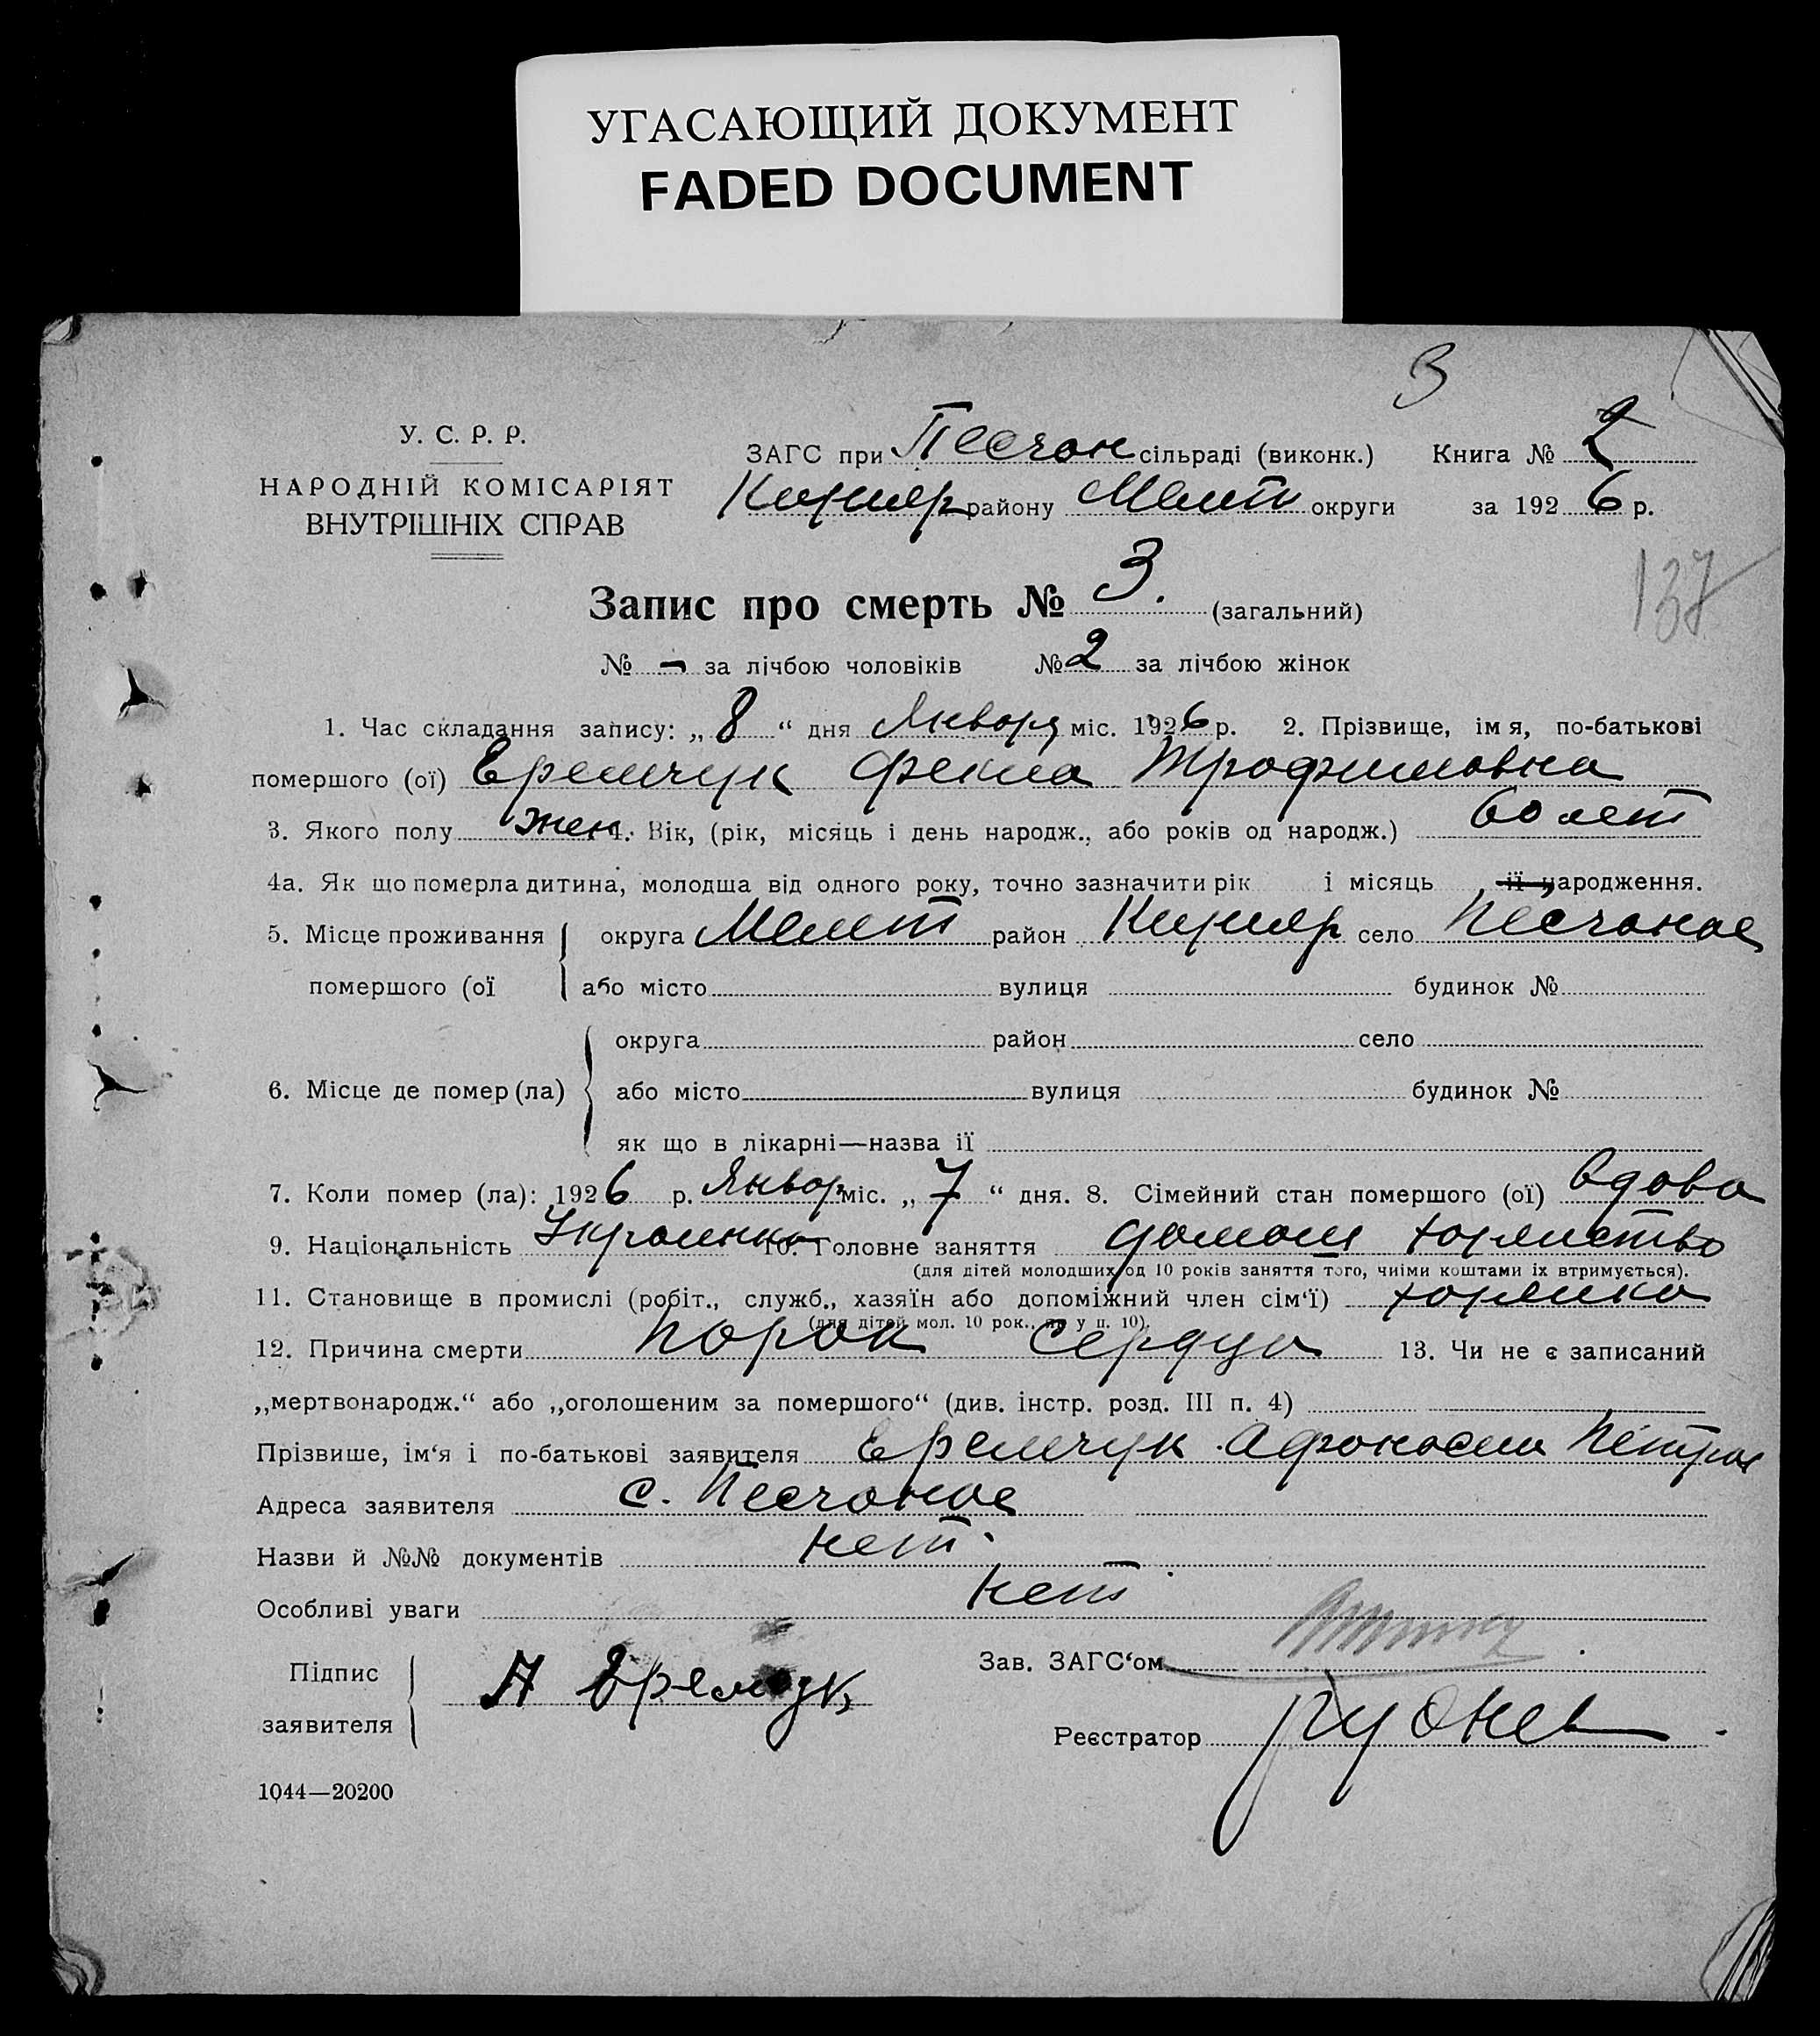 УГАСАЮЩИЙ ДОКУМЕНТ
FADED DOCUMENT
3
У. С. Р. Р.
НАРОДНІЙ КОМІСАРІЯТ
ВНУТРІШНІХ СПРАВ
ЗАГС при Песчан сільраді (виконк.) Книга № 2
району Мелит округи за 1926 р.
137
Запис про смерть № 3. (загальний)
№ - за лічбою чоловіків № 2 за лічбою жінок
1. Час складання запису: „ 8 “ дня Января міс. 1926 р. 2. Прізвище, імя, по-батькові
помершого (ої) Еремчук Фекла Трофимовна
3. Якого полу жен. 4. Вік, (рік, місяць і день народж., або років од народж.) 60 лет
4а. Як що померла дитина, молодша від одного року, точно зазначити рік і місяць її народження.
5. Місце проживання округа Мелит район село Песчаное
помершого (ої або місто вулиця будинок №
округа район село
6. Місце де помер (ла) або місто вулиця будинок №
як що в лікарні—назва її
7. Коли помер (ла): 1926 р. Январ міс. „ 7 “ дня. 8. Сімейний стан помершого (ої) вдова
9. Національність Украинка 10. Головне заняття домаш
(для дітей молодших од 10 років заняття того, чиїми коштами їх втримується).
11. Становище в промислі (робіт., служб., хазяїн або допоміжний член сім‘ї)
(для дітей мол. 10 рок., як у п. 10).
12. Причина смерти Порок сердца 13. Чи не є записаний
„мертвонародж.“ або „оголошеним за помершого“ (див. інстр. розд. III п. 4)
Прізвише, ім‘я і по-батькові заявителя Еремчук Афонасии Петров
Адреса заявителя с. Песчаное
Назви й №№ документів нет.
Особливі уваги нет.
Підпис
заявителя А Еремчук
Зав. ЗАГС‘ом
Реєстратор
1044—20200